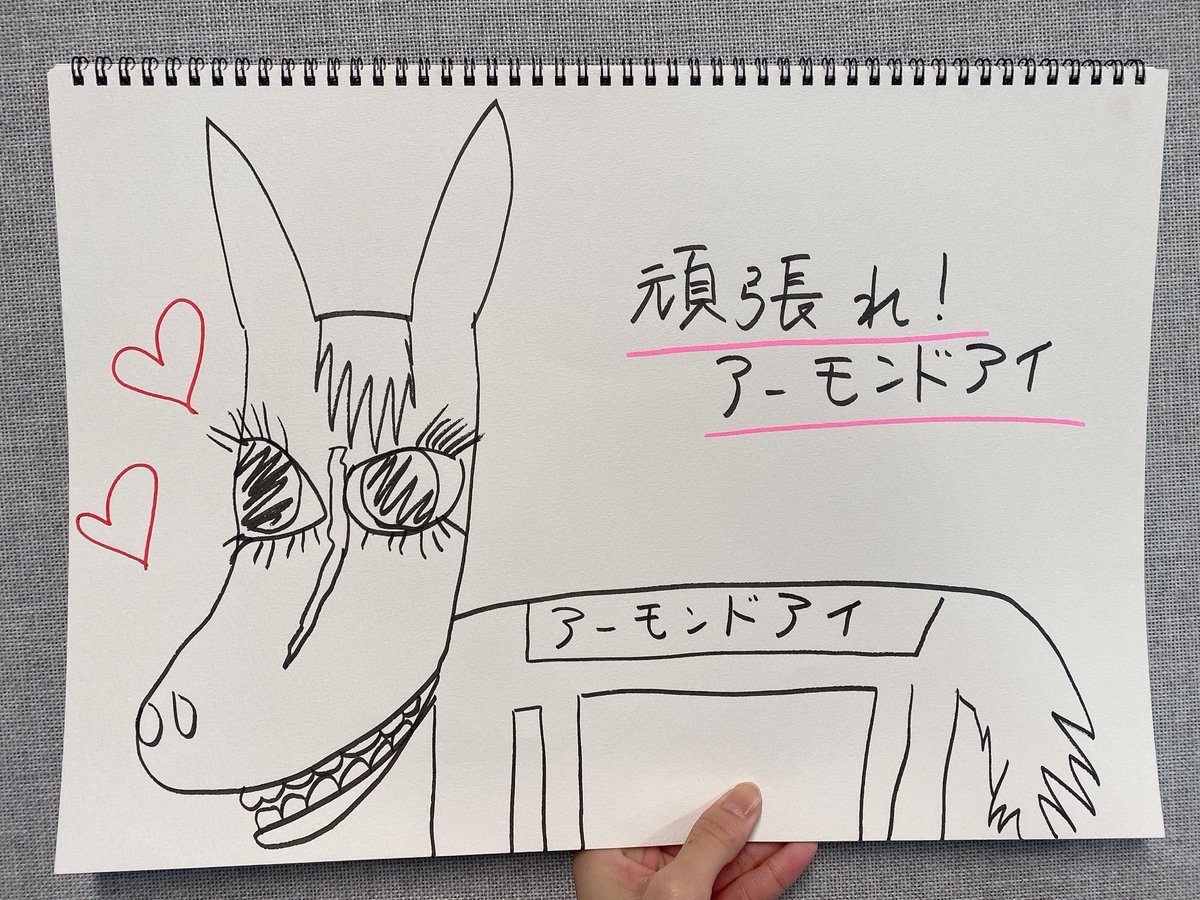 頑張れ!
アーモンドアイ
アーモンドアイ